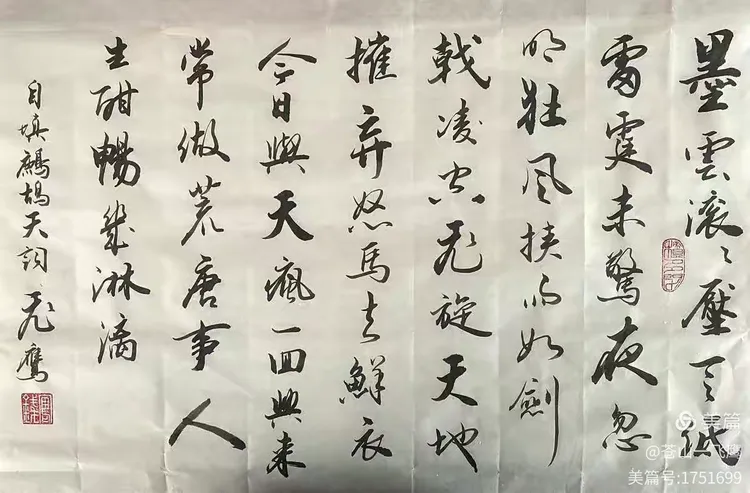 墨雲滚〻壓天低
雷霆未驚夜忽
明壯風挾雨如劍
戟凌空飛旋天地
摧弃怒馬去鮮衣
今日與天瘋一回興来
常做荒唐事人
生酣暢幾淋漓
自填鷓鴣天詞 飛鷹
美篇
美篇号:1751699